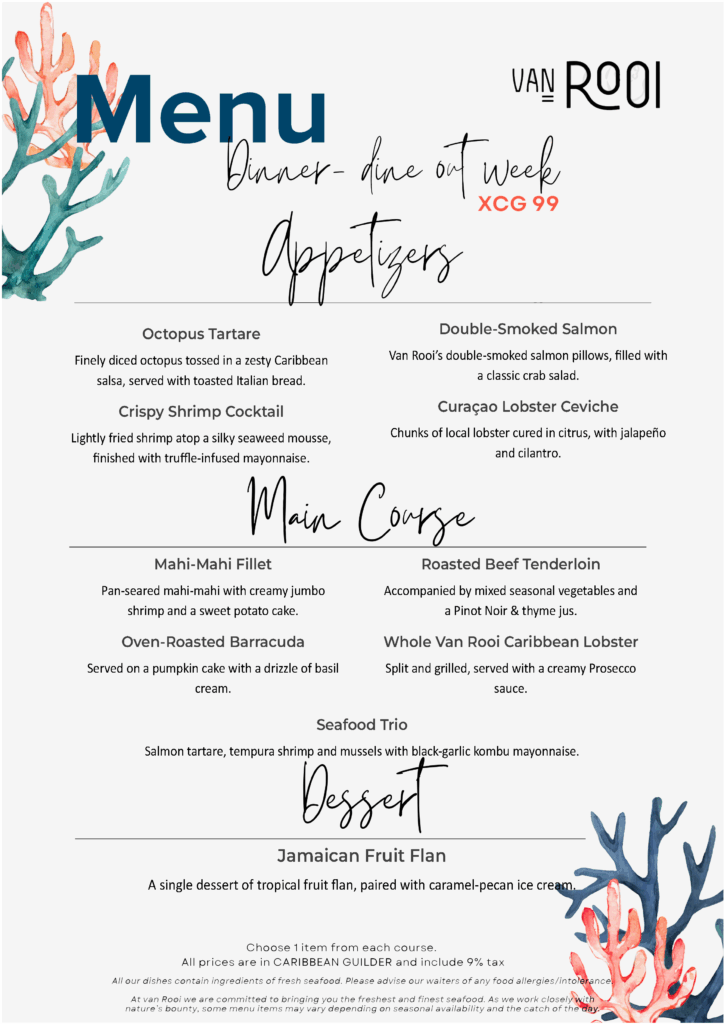 Menu
VAN ROOI
Dinner- dine out week
XCG 99
Appetizers
Octopus Tartare
Finely diced octopus tossed in a zesty Caribbean
salsa, served with toasted Italian bread.
Crispy Shrimp Cocktail
Lightly fried shrimp atop a silky seaweed mousse,
finished with truffle-infused mayonnaise.
Double-Smoked Salmon
Van Rooi’s double-smoked salmon pillows, filled with
a classic crab salad.
Curaçao Lobster Ceviche
Chunks of local lobster cured in citrus, with jalapeño
and cilantro.
Main Course
Mahi-Mahi Fillet
Pan-seared mahi-mahi with creamy jumbo
shrimp and a sweet potato cake.
Oven-Roasted Barracuda
Served on a pumpkin cake with a drizzle of basil
cream.
Roasted Beef Tenderloin
Accompanied by mixed seasonal vegetables and
a Pinot Noir & thyme jus.
Whole Van Rooi Caribbean Lobster
Split and grilled, served with a creamy Prosecco
sauce.
Seafood Trio
Salmon tartare, tempura shrimp and mussels with black-garlic kombu mayonnaise.
Dessert
Jamaican Fruit Flan
A single dessert of tropical fruit flan, paired with caramel-pecan ice cream.
Choose 1 item from each course.
All prices are in CARIBBEAN GUILDER and include 9% tax
All our dishes contain ingredients of fresh seafood. Please advise our waiters of any food allergies/intolerance.
At van Rooi we are committed to bringing you the freshest and finest seafood. As we work closely with
nature's bounty, some menu items may vary depending on seasonal availability and the catch of the day.